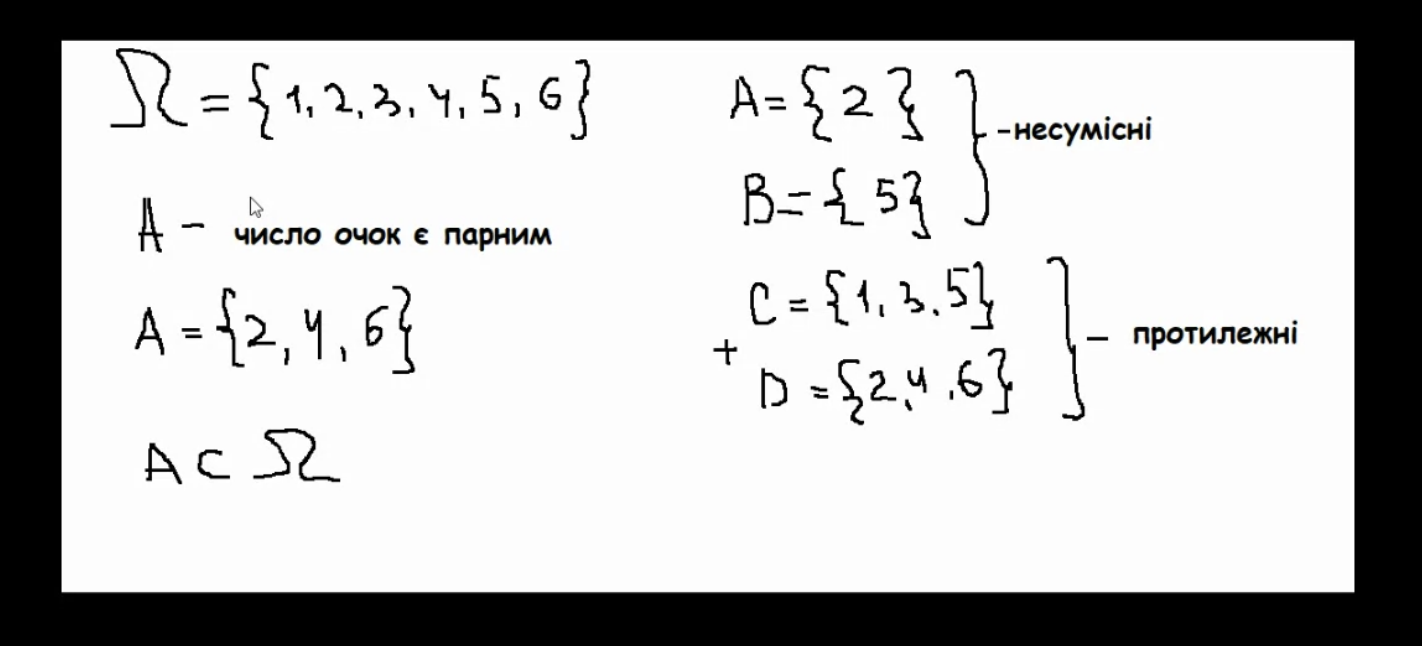 Ω = {1, 2, 3, 4, 5, 6}
A - число очок є парним
A = {2, 4, 6}
A ⊂ Ω
A = {2}
B = {5}
-несумісні
C = {1, 3, 5}
+
D = {2, 4, 6}
- протилежні